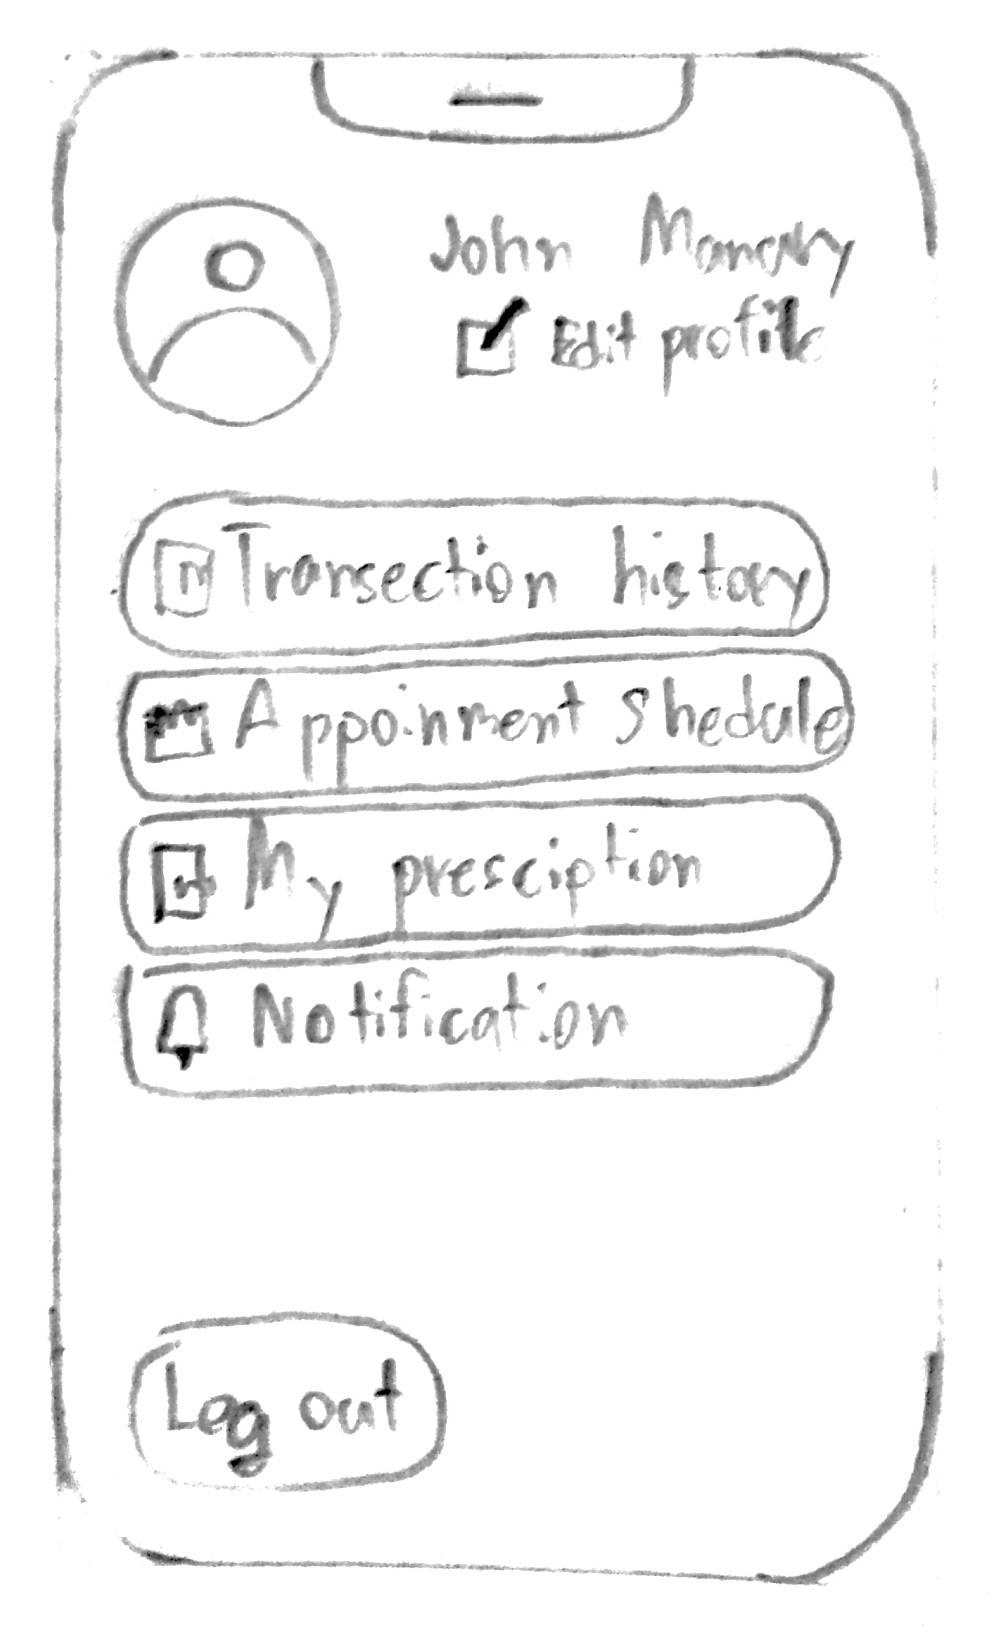 John Manary
Edit profile
Transection history
Appoinment shedule
My presciption
Notification
Log out